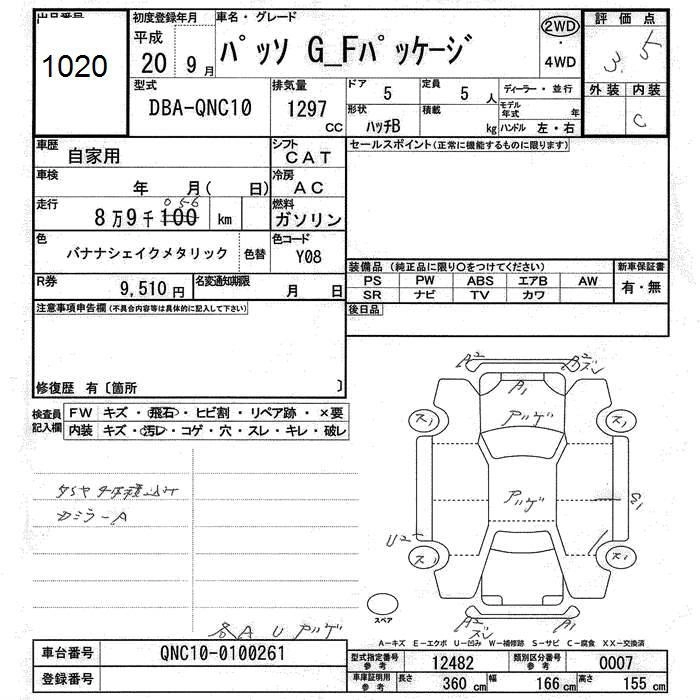 出品番号
1020
初度登録年月
平成
20 9月
車名・グレード
パッソ G_Fパッケージ
2WD
・
4WD
評価点
3.5
外装 内装
C
型式
DBA-QNC10
排気量
1297
CC
ドア
5
定員
5 人
形状
ハッチB
積載
kg
ディーラー・並行
モデル年式 年
ハンドル 左・右
車歴
自家用
シフト
CAT
車検
年 月( 日)
冷房
AC
走行
056
8万9千100 km
燃料
ガソリン
色
バナナシェイクメタリック
色替
色コード
Y08
R券
9,510円
名変通知期限
月 日
セールスポイント(正常に機能するものに限ります)
装備品 (純正品に限り○をつけてください)
PS PW ABS エアB AW
SR ナビ TV カワ
新車保証書
有・無
後日品
注意事項申告欄(不具合内容等は具体的に記入して下さい)
修復歴 有〔箇所 〕
検査員記入欄
FW キズ・飛石・ヒビ割・リペア跡・×要
内装 キズ・汚レ・コゲ・穴・スレ・キレ・破レ
タイヤ 4本積込み
ミラーA
各A U アバゲ
A2
B2
ズレ
A1
アバゲ
ス1
ス1
アバゲ
U2
ス1
ス1
A2
ズレ
A1
スペア
A-キズ E-エクボ U-凹み W-補修跡 S-サビ C-腐食 XX-交換済
車台番号
QNC10-0100261
登録番号
型式指定番号
参考
12482
類別区分番号
参考
0007
車庫証明用
参考
長さ
360 cm
幅
166 cm
高さ
155 cm